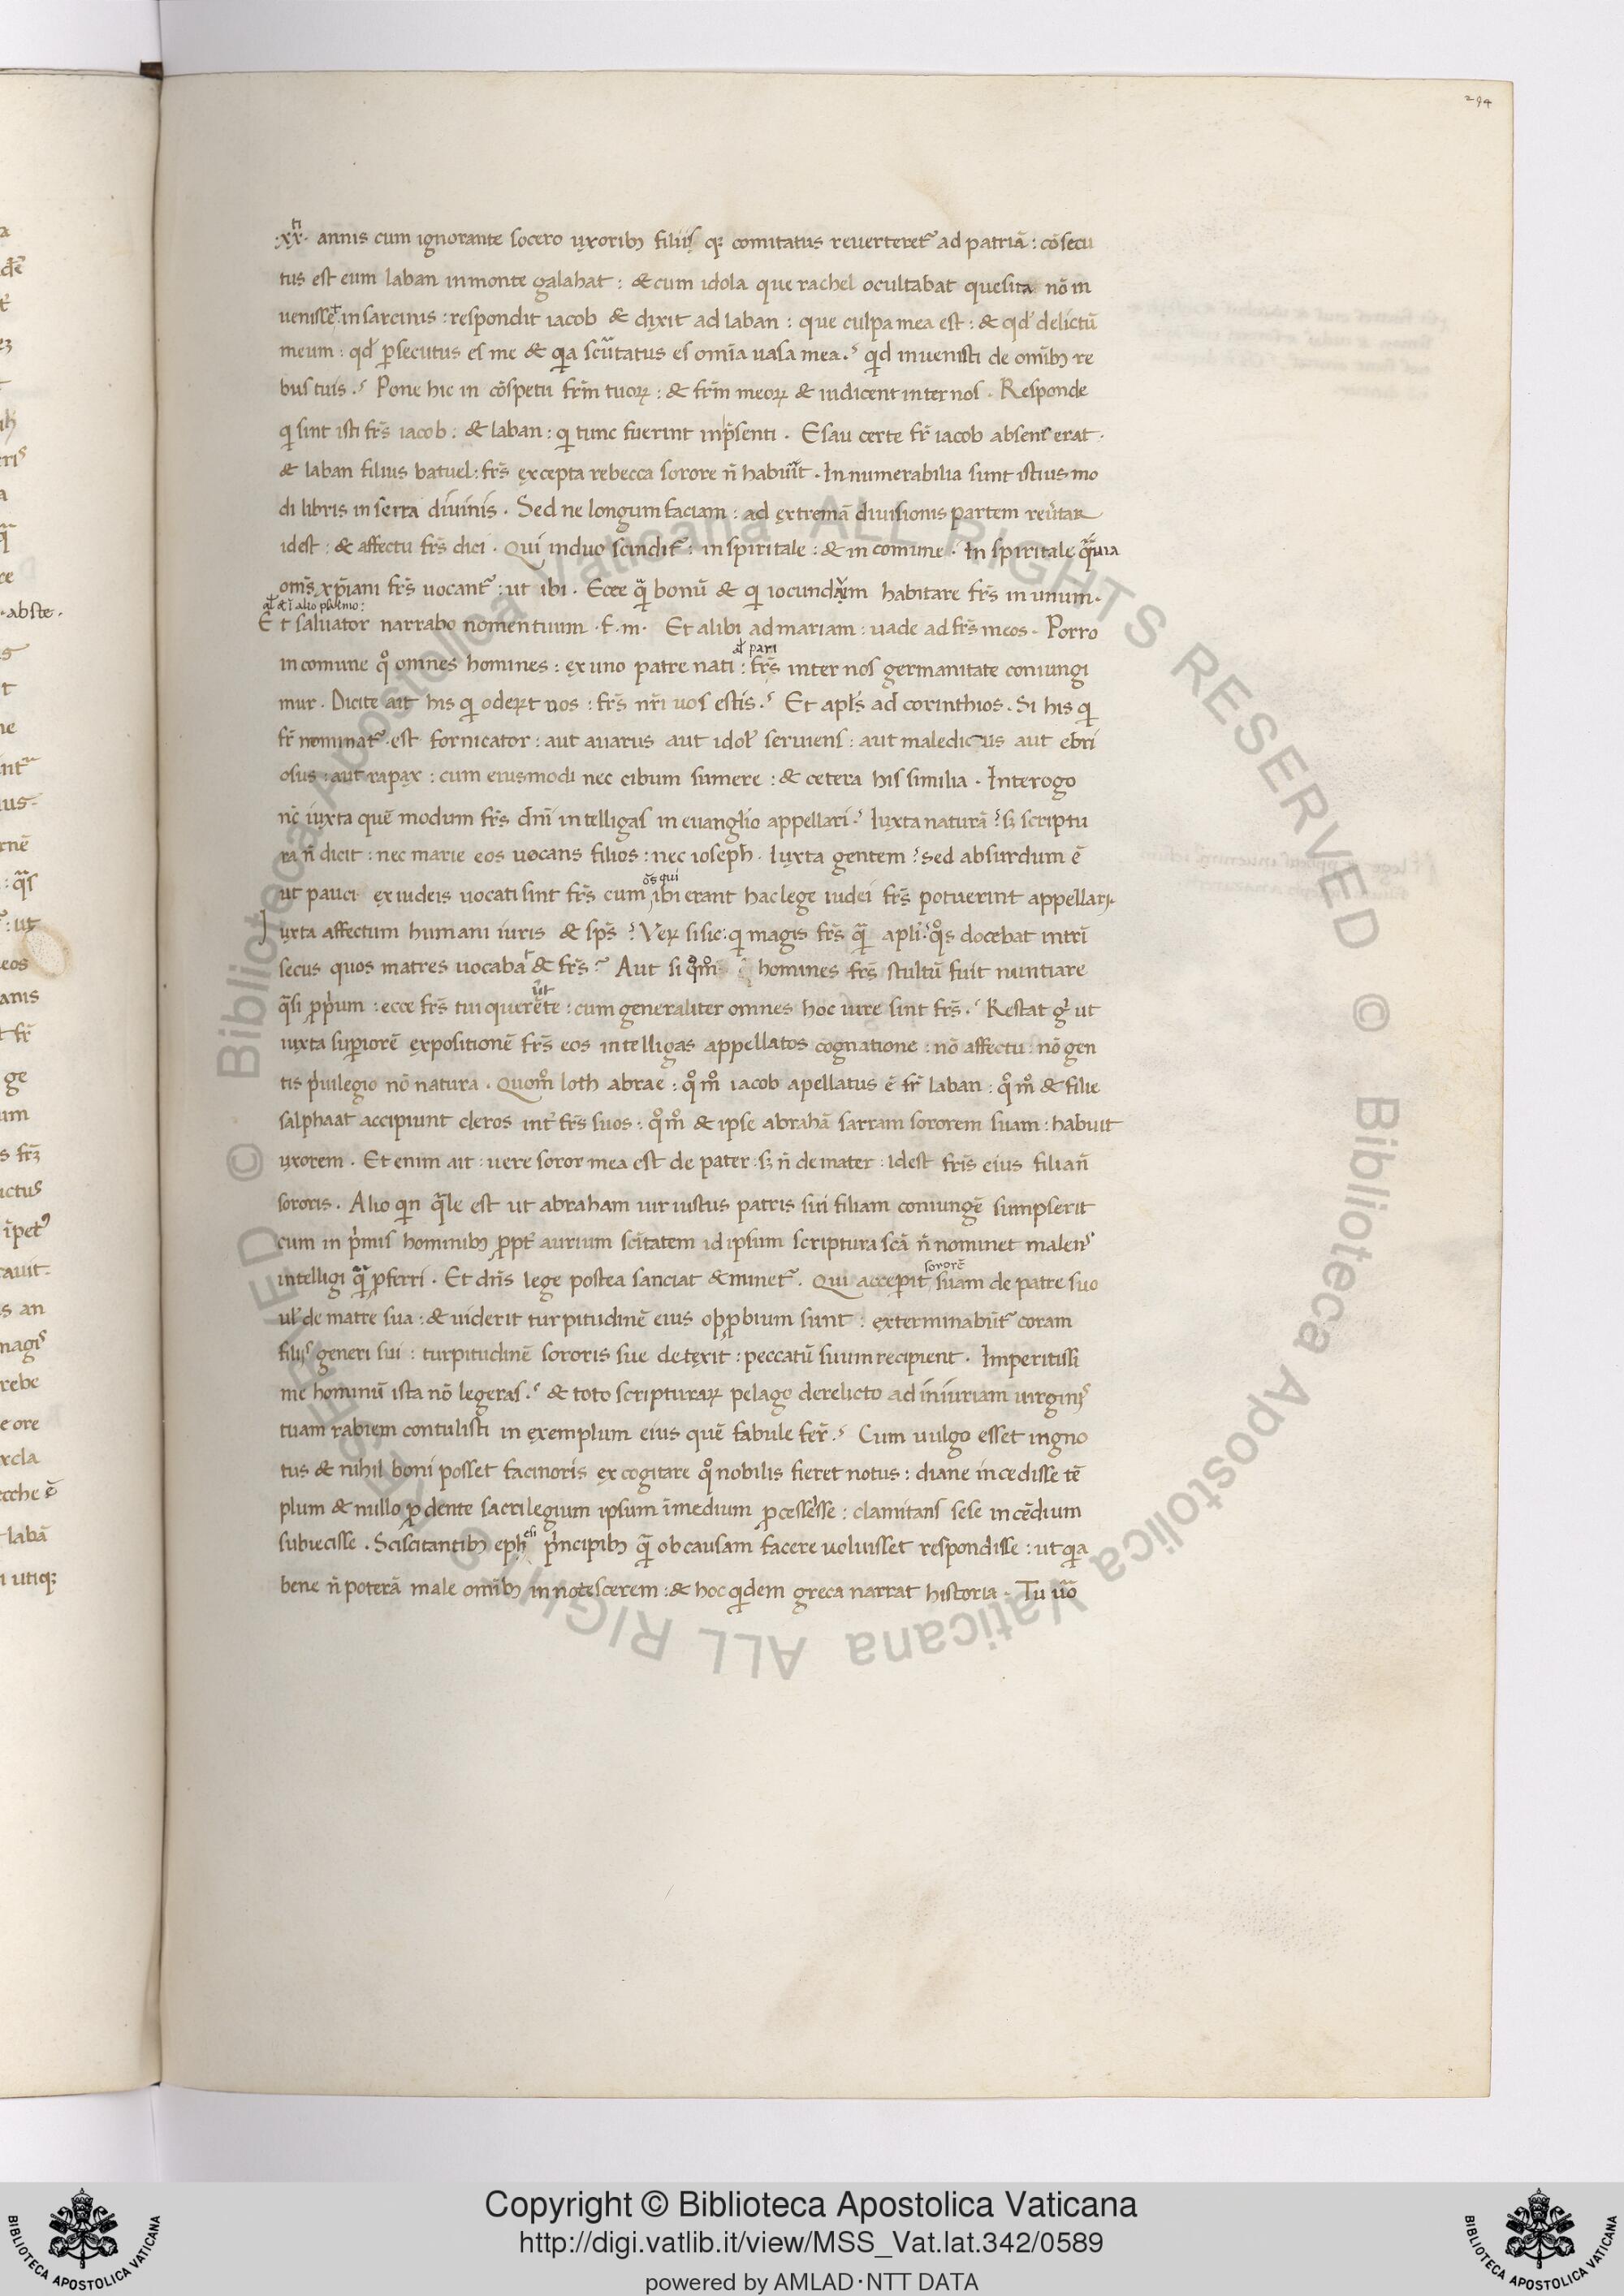 294
·xx·ti annis cum ignorante socero uxorib; filiis q; comitatus reuerteret᷑ ad patriā : cōsecu
tus est eum laban in monte galahat : & cum idola que rachel ocultabat quesita nō in
uenisset in sarcinis : respondit iacob & dixit ad laban : que culpa mea est : & qd delictū
meum : qd̄ psecutus es me & qia scrutatus es om̄ia uasa mea .? qd inuenisti de omīb; re
bus tuis .? Pone hic in cōspetu frm̄ tuoꝝ : & frm̄ meoꝝ & iudicent inter nos . Responde
qi sint isti frs̄ iacob : & laban : qi tunc fuerint in psenti . Esau certe fr̄ iacob absens erat .
& laban filius batuel : frs̄ excepta rebecca sorore n̄ habuit . In numerabilia sunt istius mo
di libris inserta diuinis . Sed ne longum faciam : ad extremā diuisionis partem reūtar
idest : & affectu frs̄ dici . Qui in duo scindit᷑ : in spiritale : & in comune . In spiritale q̄ uia
oms̄ xp̄iani frs̄ uocant᷑ : ut ibi . Ecce q̄ bonū & q̄ iocundum habitare frs̄ in unum .
& ī alio psalmo :
Et saluator narrabo nomen tuum · f · m · Et alibi ad mariam : uade ad frs̄ meos . Porro
pari
in comune qo omnes homines : ex uno patre nati : frs̄ inter nos germanitate coniungi
mur . Dicite ait his qi oderꝝt nos : frs̄ nr̄i uos estis .? Et apls̄ ad corinthios . Si his qi
fr̄ nominat᷑ est fornicator : aut auarus aut idoł seruiens : aut maledicus aut ebri
osus : aut rapax : cum eiusmodi nec cibum sumere : & cetera his similia . Interogo
nc̄ iuxta quē modum frs̄ dn̄i intelligas in euanglio appellari .? Iuxta naturā ? s; scriptu
ra n̄ dicit : nec marie eos uocans filios : nec ioseph . Iuxta gentem ? sed absurdum ē
os̄ qui
ut pauci ex iudeis uocati sint frs̄ cum ibi erant hac lege iudei frs̄ potuerint appellari .
Iuxta affectum humani iuris & sps̄ ? Veꝝ si sic : qi magis frs̄ q̄ apli ? qos docebat intrī
secus quos matres uocabat & frs̄ ? Aut si homines frs̄ stultū fuit nuntiare
q̄si pprium : ecce frs̄ tui querēte : cum generaliter omnes hoc iure sint frs̄ .? Restat g ut
iuxta supiorē expositionē frs̄ eos intelligas appellatos cognatione : nō affectu : nō gen
tis priuilegio nō natura . Quomo loth abrae : qo mo iacob apellatus ē fr̄ laban : qo mo & filie
salphaat accipiunt cleros int frs̄ suos : qo mo & ipse abrahā sarram sororem suam : habuit
uxorem . Et enim ait : uere soror mea est de pater : s; n̄ de mater : idest fris̄ eius filia n̄
sororis . Alio qin q̄le est ut abraham uir iustus patris sui filiam coniungē sumpserit
cum in primis hominib; ppt aurium scītatem id ipsum scriptura scā n̄ nominet malens
intelligi q̄ pferri . Et dn̄s lege postea sanciat & minet᷑ . Qui acceperit sororē suam de patre suo
uł de matre sua : & uiderit turpitudinē eius opprobium sunt : exterminabūt᷑ coram
filijs generi sui : turpitudinē sororis sue detexit : peccatū suum recipient . Imperitissi
me hominū ista nō legeras .? & toto scripturaꝝ pelago derelicto ad iniuriam uirginis
tuam rabiem contulisti in exemplum eius quē fabule fer̄ .? Cum uulgo esset ingno
tus & nihil boni posset facinoris excogitare qo nobilis fieret notus : diane incedisse tē
plum & nullo pdente sacrilegium ipsum in medium pcessisse : clamitans sese incēdium
subiecisse . Sciscitantib; ephesi pncipib; q̄ ob causam facere uoluisset respondisse : ut qia
bene n̄ poterā male omib; innotescerem : & hoc qidem greca narrat historia . Tu uo
Copyright © Biblioteca Apostolica Vaticana
http://digi.vatlib.it/view/MSS_Vat.lat.342/0589
powered by AMLAD·NTT DATA
BIBLIOTECA APOSTOLICA VATICANA
BIBLIOTECA APOSTOLICA VATICANA
© Biblioteca Apostolica Vaticana ALL RIGHTS RESERVED © Biblioteca Apostolica Vaticana ALL RIGHTS RESERVED